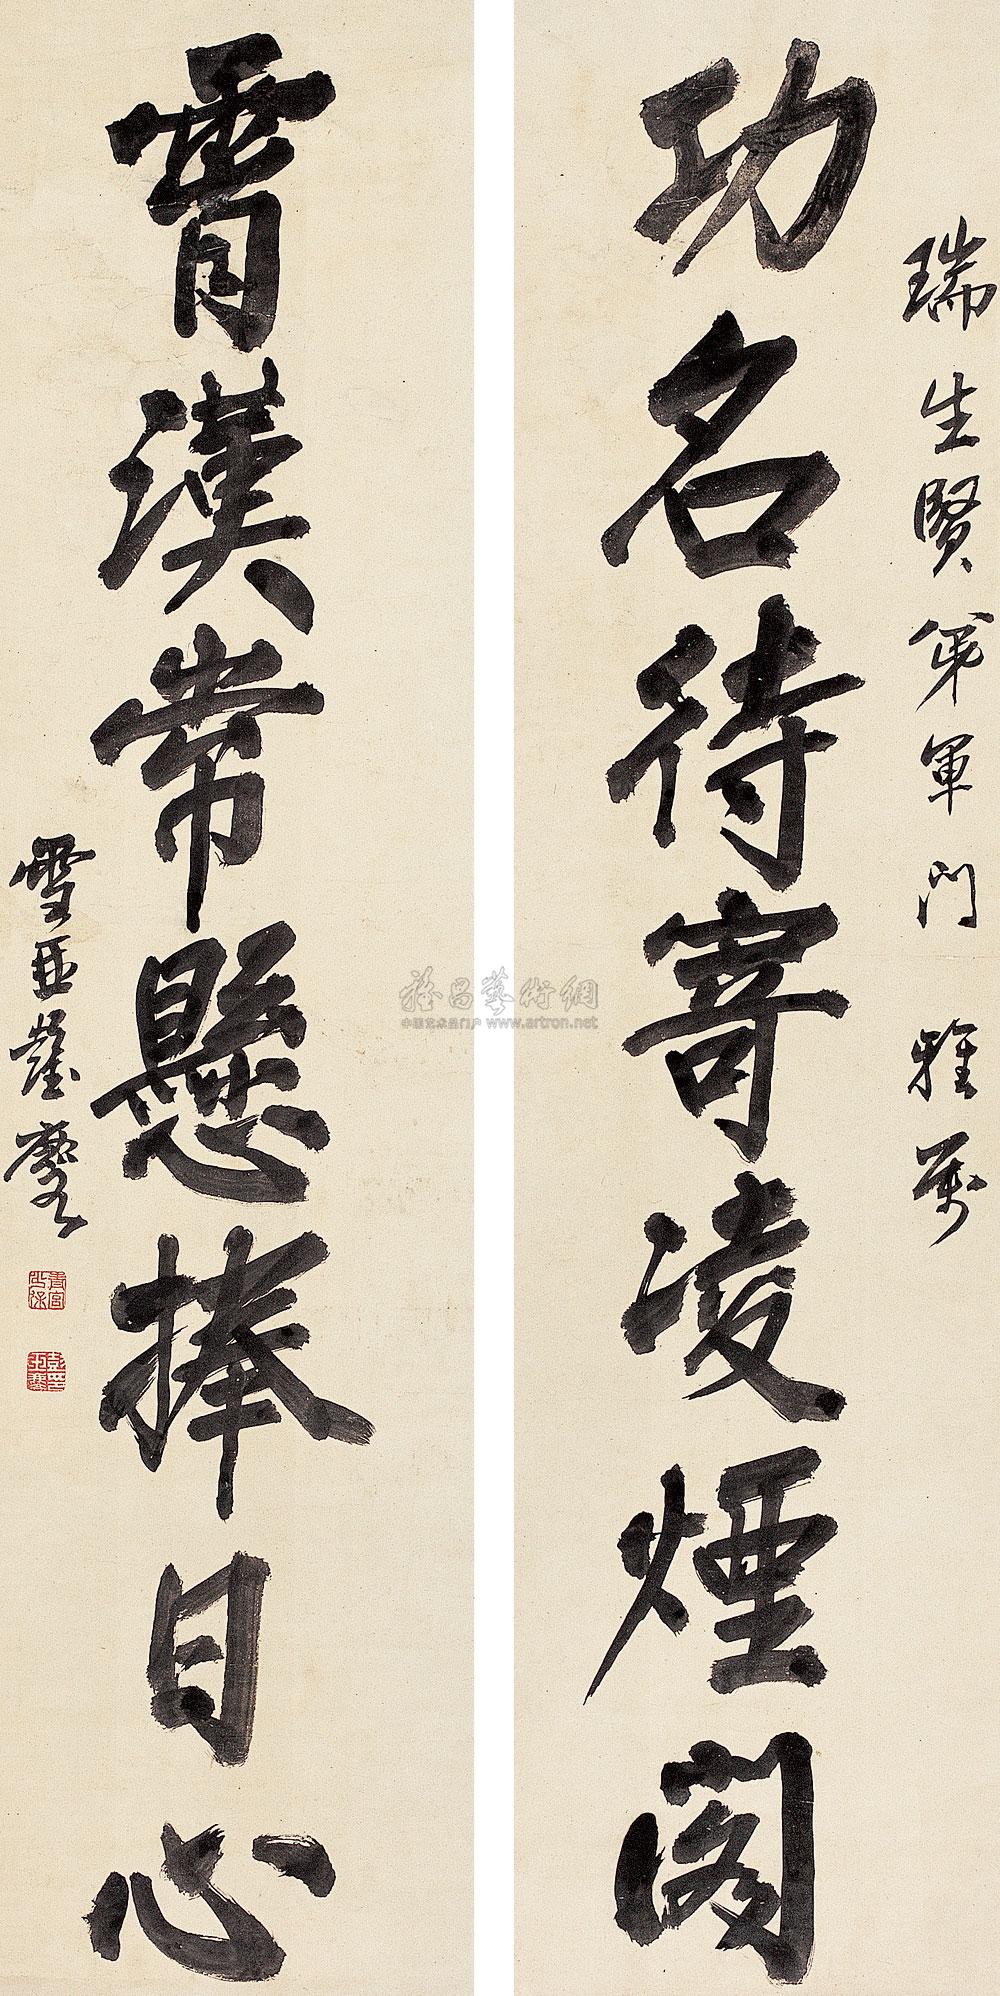 瑞生賢弟軍門 雅屬
功名待寄凌煙閣
霄漢常懸捧日心
雪琴彭玉麐
雅昌藝術網
中国艺术品门户 www.artron.net